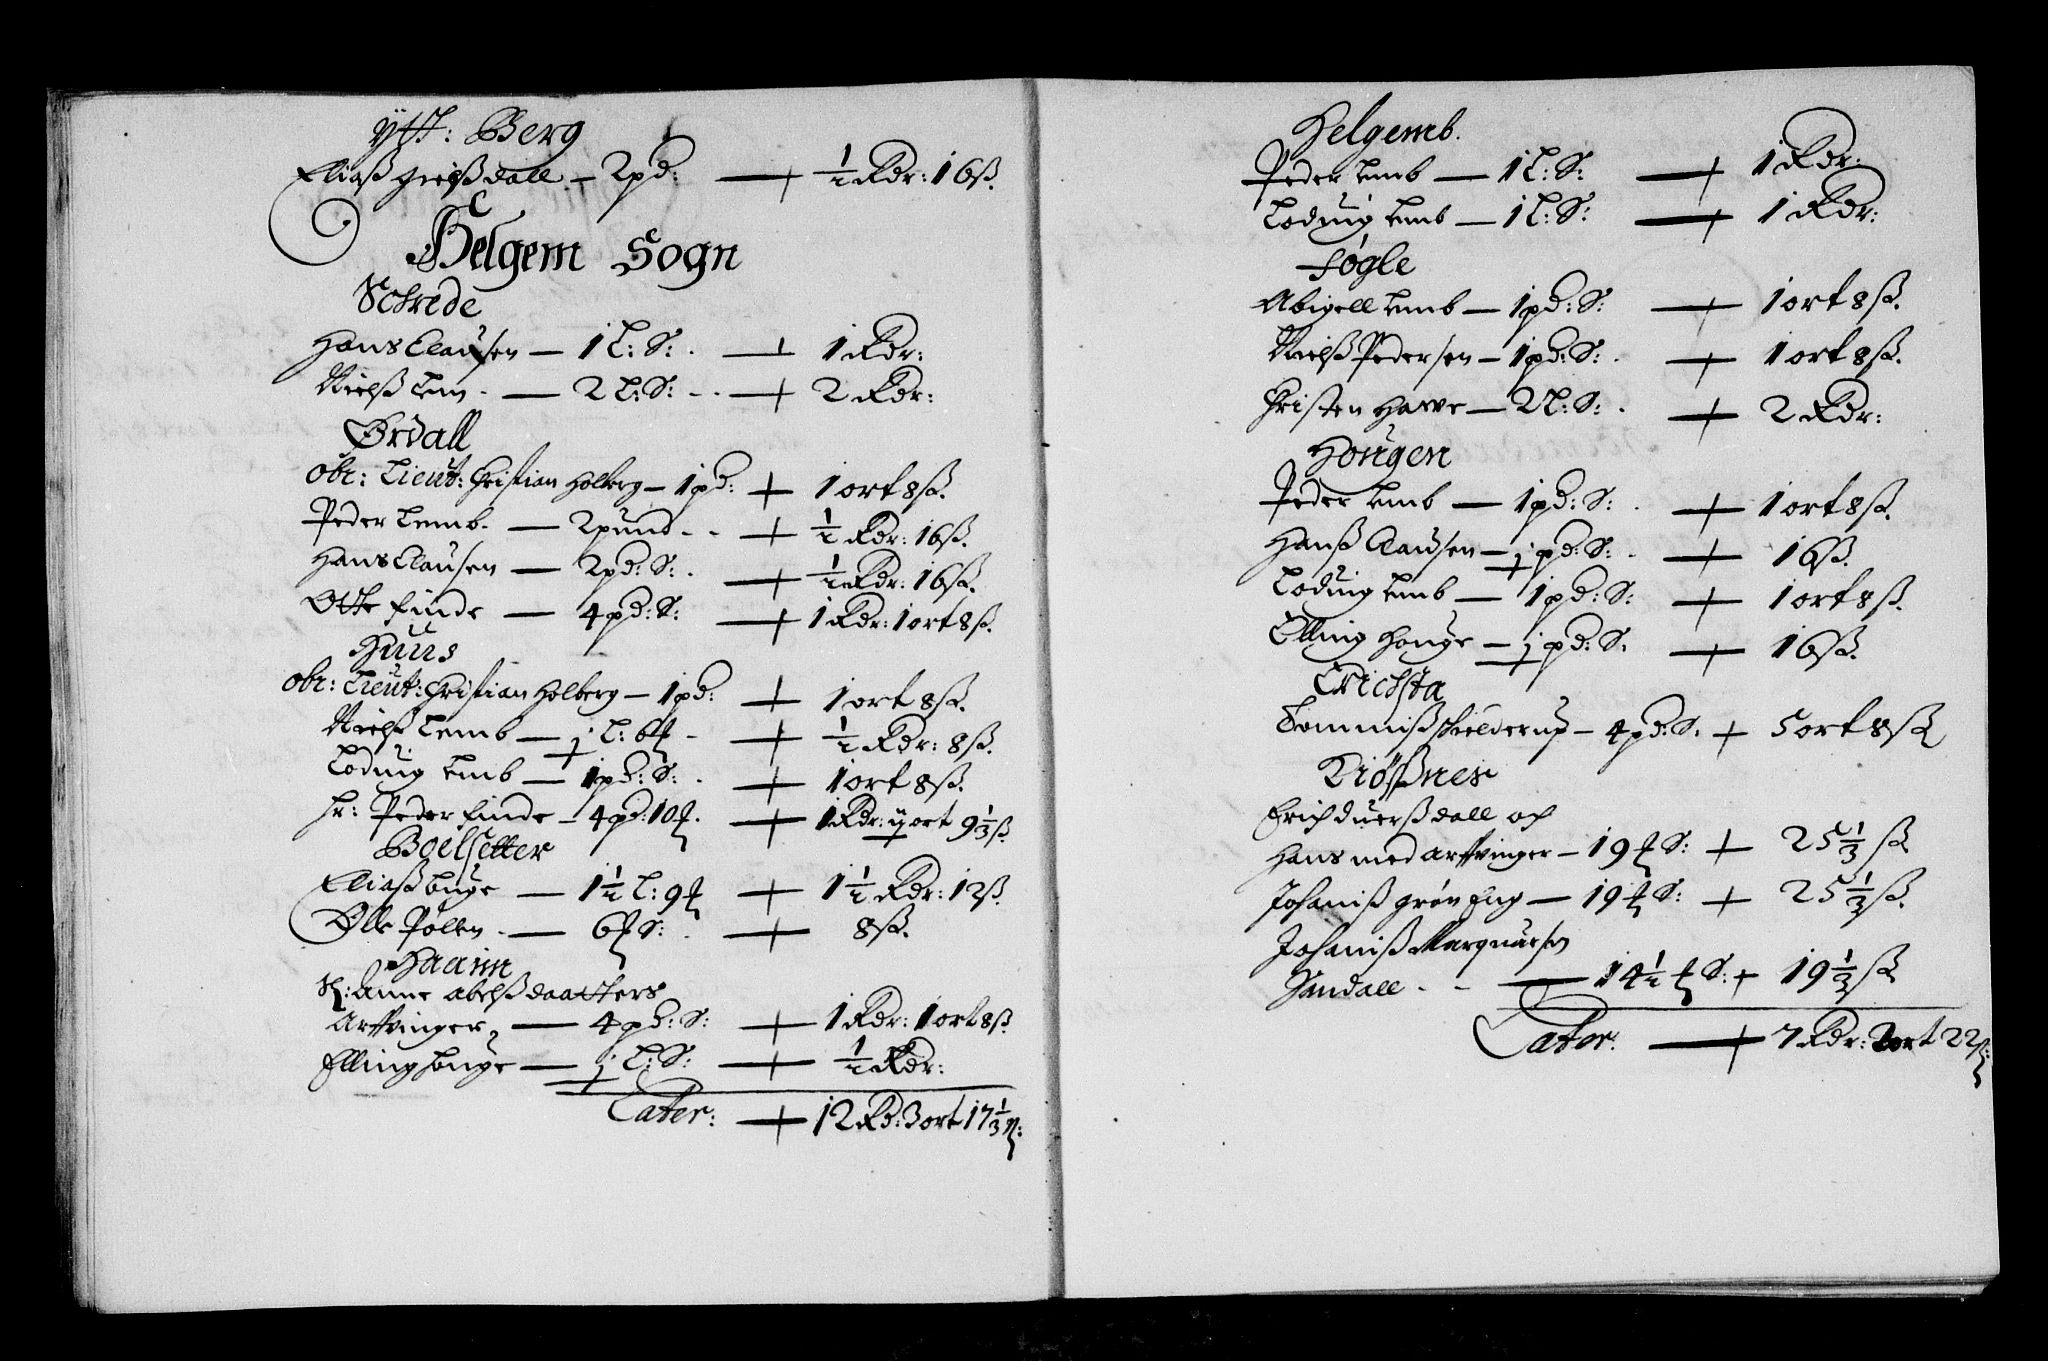 ÿtt: Berg
Eliaß Greißdall – 2 pd: — ½ Rdr: 16 ß.
Helgem Sogn
Schrede
Hans Clausen — 1 L: S: — 1 Rdr:
Nielß Lem — 2 L: S: — 2 Rdr:
Ørdall
obr: Lieut: Christian Holberg – 1 pd: — 1 ort 8 ß.
Peder Lemb. — 2 pund — ½ Rdr: 16 ß.
Hans Clausen — 2 pd: S: — ½ Rdr: 16 ß.
Otte Finde — 4 pd: S: — 1 Rdr: 1 ort 8 ß.
Huus
obr: Lieut: Christian Holberg – 1 pd: — 1 ort 8 ß.
Nielß Lemb — j L: 6 — ½ Rdr: 8 ß.
Loduig Lemb — 1 pd: S: — 1 ort 8 ß.
Hr: Peder Finde – 4 pd: 10 — 1 Rdr: ij ort 9⅓ ß.
Boelsetter
Eliaß Houge — 1½ L: 9 — 1½ Rdr: 12 ß.
Olle Polen — 6 S: — 8 ß.
Haaim
Sl: Anne Abelß daatters
Arffvinger — 4 pd: S: — 1 Rdr: 1 ort 8 ß.
Elling Houge — j L: S: — ½ Rdr:
Later: — 12 Rd: 3 ort 17⅓ ß:
Helgemb.
Peder Lemb — 1 L: S: — 1 Rdr:
Loduig Lemb — 1 L: S: — 1 Rdr:
Føgle
Abigell Lemb — 1 pd: S: — 1 ort 8 ß.
Nielß Pedersen – 1 pd: S: — 1 ort 8 ß.
Christen Harre — 2 L: S: — 2 Rdr:
Hougen
Peder Lemb — 1 pd: S: — 1 ort 8 ß.
Hanß Clausen — j pd: S: — 16 ß.
Loduig Lemb — 1 pd: S: — 1 ort 8 ß.
Elling Houge — j pd: S. — 16 ß.
Erichsta
Tommiß Skielderup – 4 pd: S. — 5 ort 8 ß
Kiößnes
Erich Duerßdall och
Hans med arffvinger – 19 S: — 25⅓ ß
Johaniß Grøn Eng — 19 S: — 25⅓ ß.
Johaniß Marquarsen
Sandall — 14½ S: — 19⅓ ß
Later. — 7 Rdr: 2 ort 22 ß: